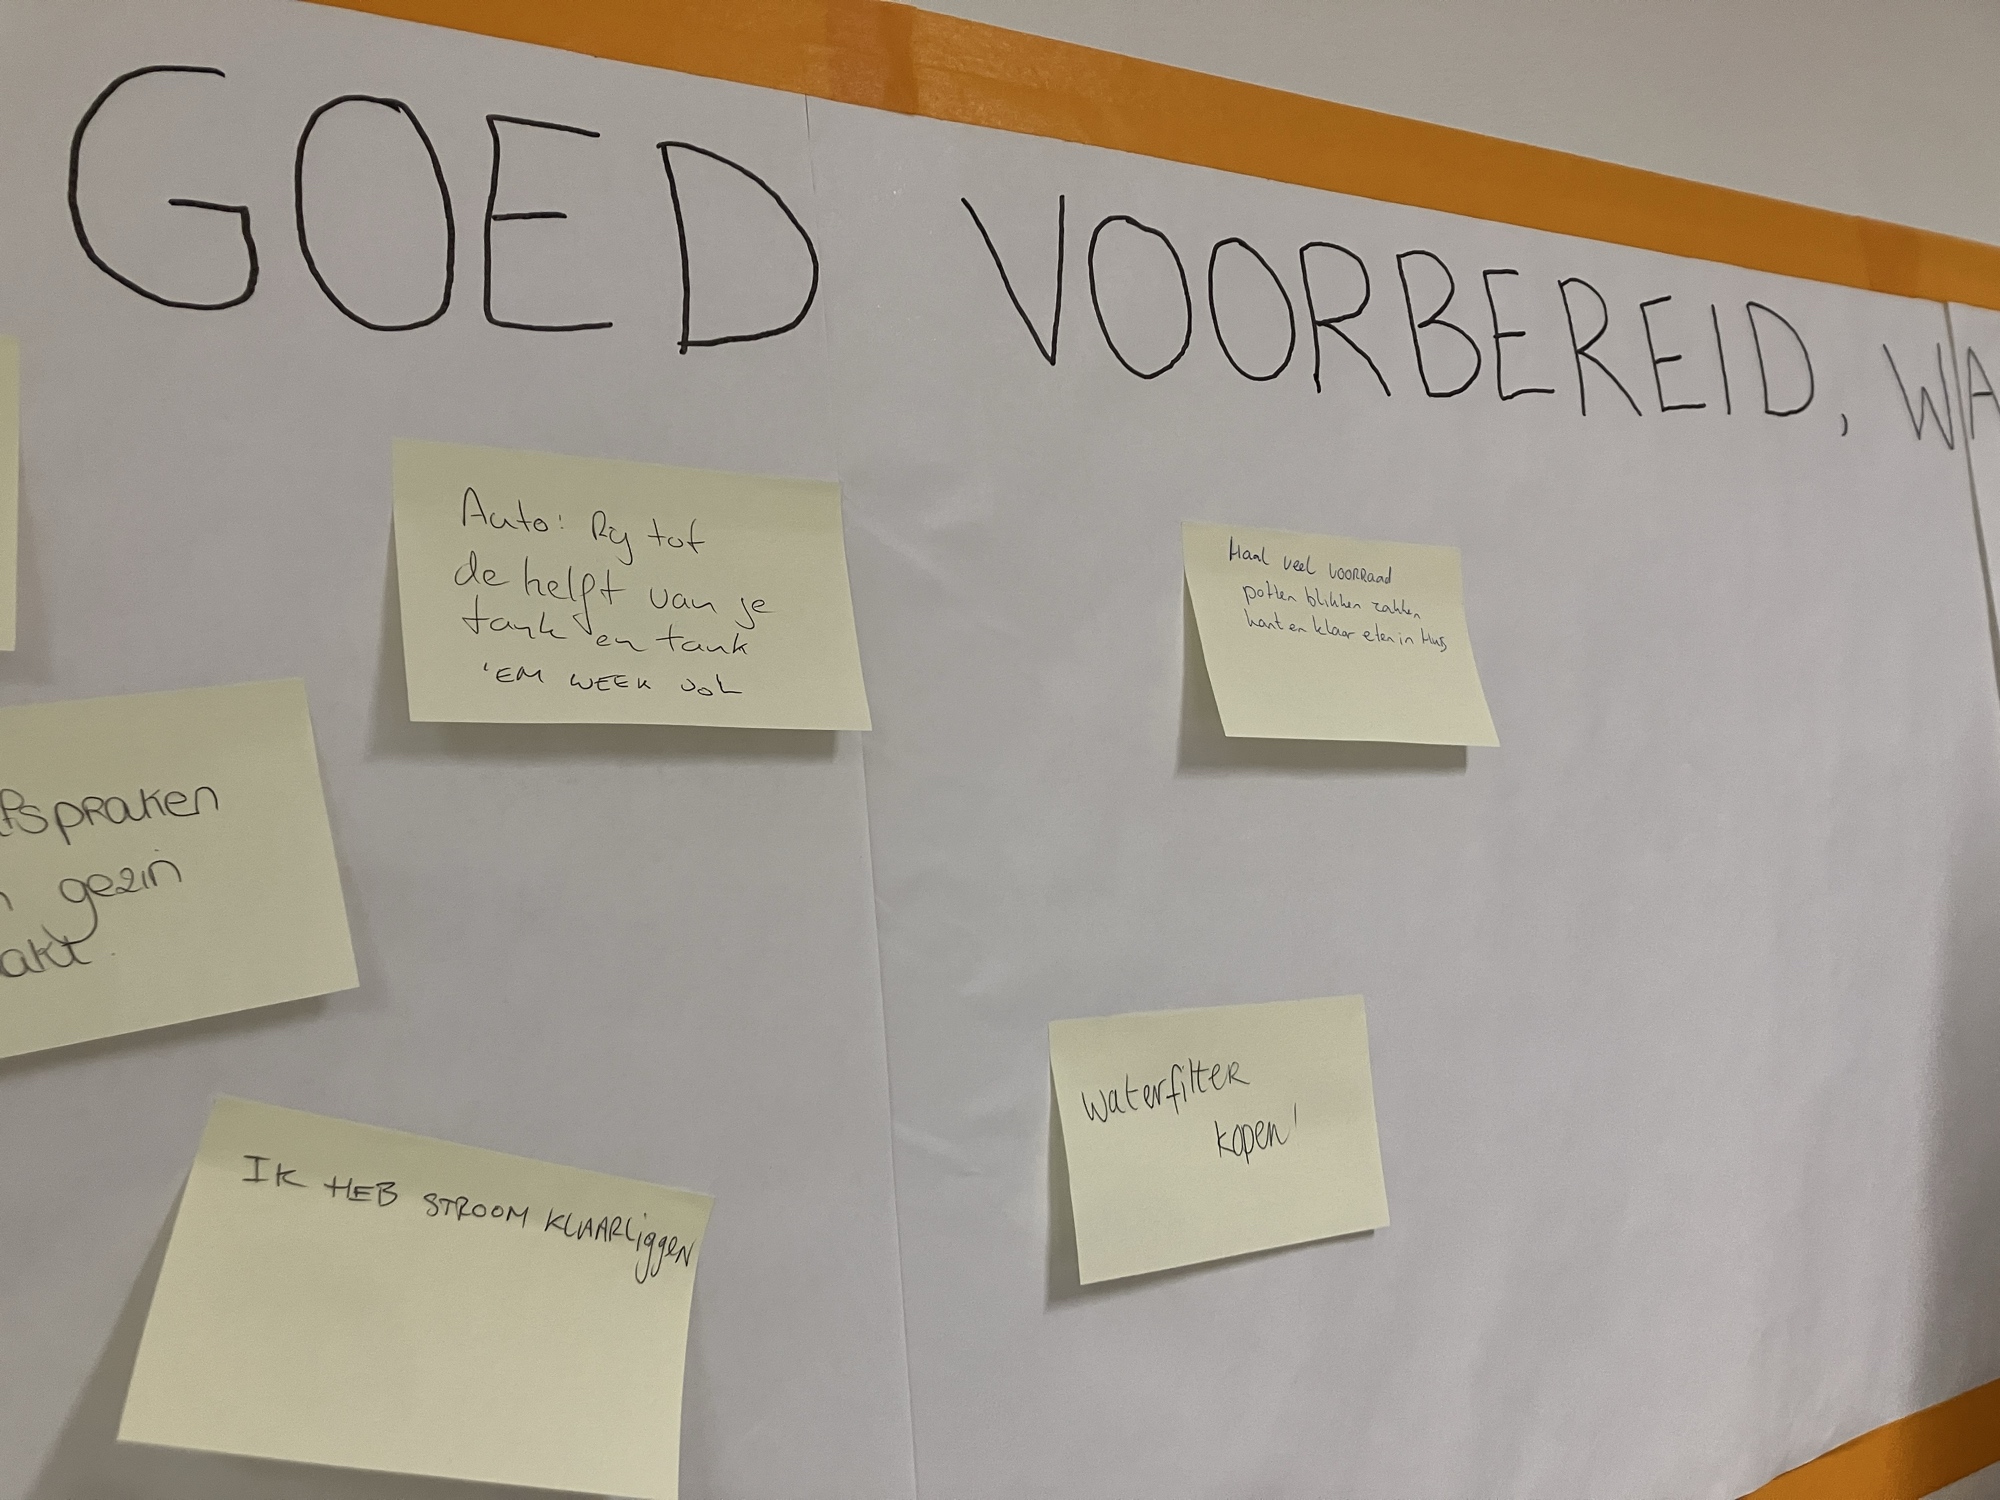 GOED VOORBEREID, WA
Auto: Rij tot
de helft van je
tank en tank
'EM WEEK VOL
Haal veel vooRRaad
potten blikken zakken
kant en klaar eten in Huis
fspraken
gezin
akt.
IK HEB STROOM KLAARLiggeN
waterfilter
kopen!